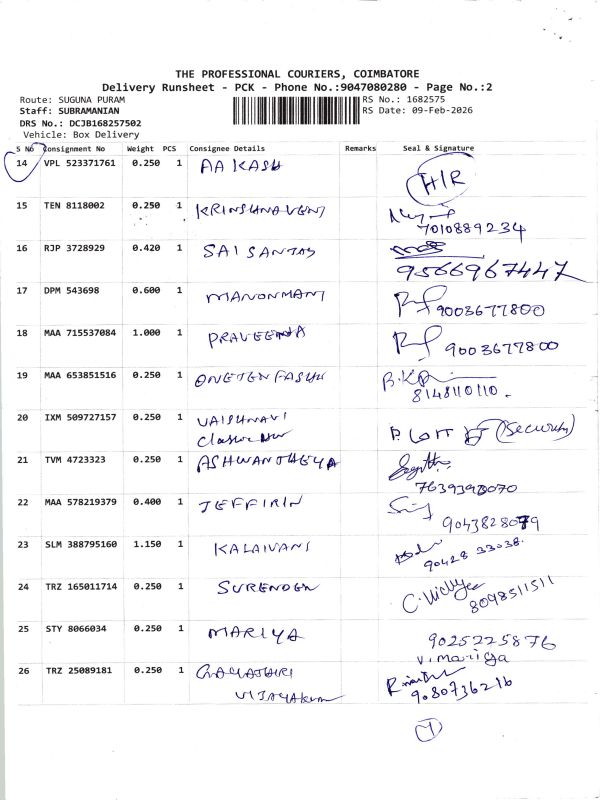 THE PROFESSIONAL COURIERS, COIMBATORE
Delivery Runsheet - PCK - Phone No.:9047080280 - Page No.:2
Route: SUGUNA PURAM
RS No.: 1682575
Staff: SUBRAMANIAN
RS Date: 09-Feb-2026
DRS No.: DCJB168257502
Vehicle: Box Delivery
S No Consignment No Weight PCS Consignee Details Remarks Seal & Signature
14 VPL 523371761 0.250 1 AAKASH H/R
15 TEN 8118002 0.250 1 KRINSHNAVENI
7010889234
16 RJP 3728929 0.420 1 SAI SANTAS
9566967447
17 DPM 543698 0.600 1 MANONMANI 9003677800
18 MAA 715537084 1.000 1 PRAVEENA 9003677800
19 MAA 653851516 0.250 1 ONETEN FASHU
8148110110.
20 IXM 509727157 0.250 1 VAISHNAVI
(Security)
21 TVM 4723323 0.250 1 ASHWANTHEYA
7639393070
22 MAA 578219379 0.400 1 JEFFIRIN
9043828079
23 SLM 388795160 1.150 1 KALAIVANI
90428 33038.
24 TRZ 165011714 0.250 1 SURENDEN C.
8098511511
25 STY 8066034 0.250 1 MARIYA 9025225876
V. Mariya
26 TRZ 25089181 0.250 1 GAYATHIRI
VIJAYAKUM 9080736216